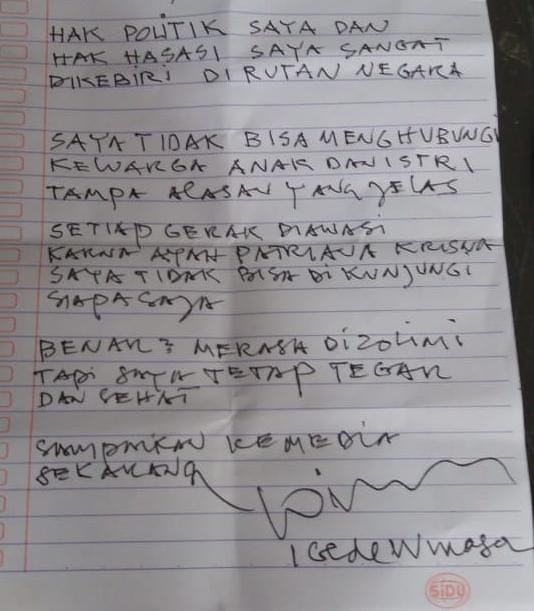 HAK POLITIK SAYA DAN
HAK HASASI SAYA SANGAT
DIKEBIRI DI RUTAN NEGARA
SAYA TIDAK BISA MENGHUBUNGI
KEWARGA ANAK DAN ISTRI
TAMPA ALASAN YANG JELAS
SETIAP GERAK DIAWASI
KARNA AYAH PATRIANA KRISNA
SAYA TIDAK BISA DI KUNJUNGI
SIAPA SAJA
BENAR2 MERASA DIZOLIMI
TAPI SAYA TETAP TEGAR
DAN SEHAT
SAMPAIKAN KE MEDIA
SEKARANG
I Gede Winasa
SiDU